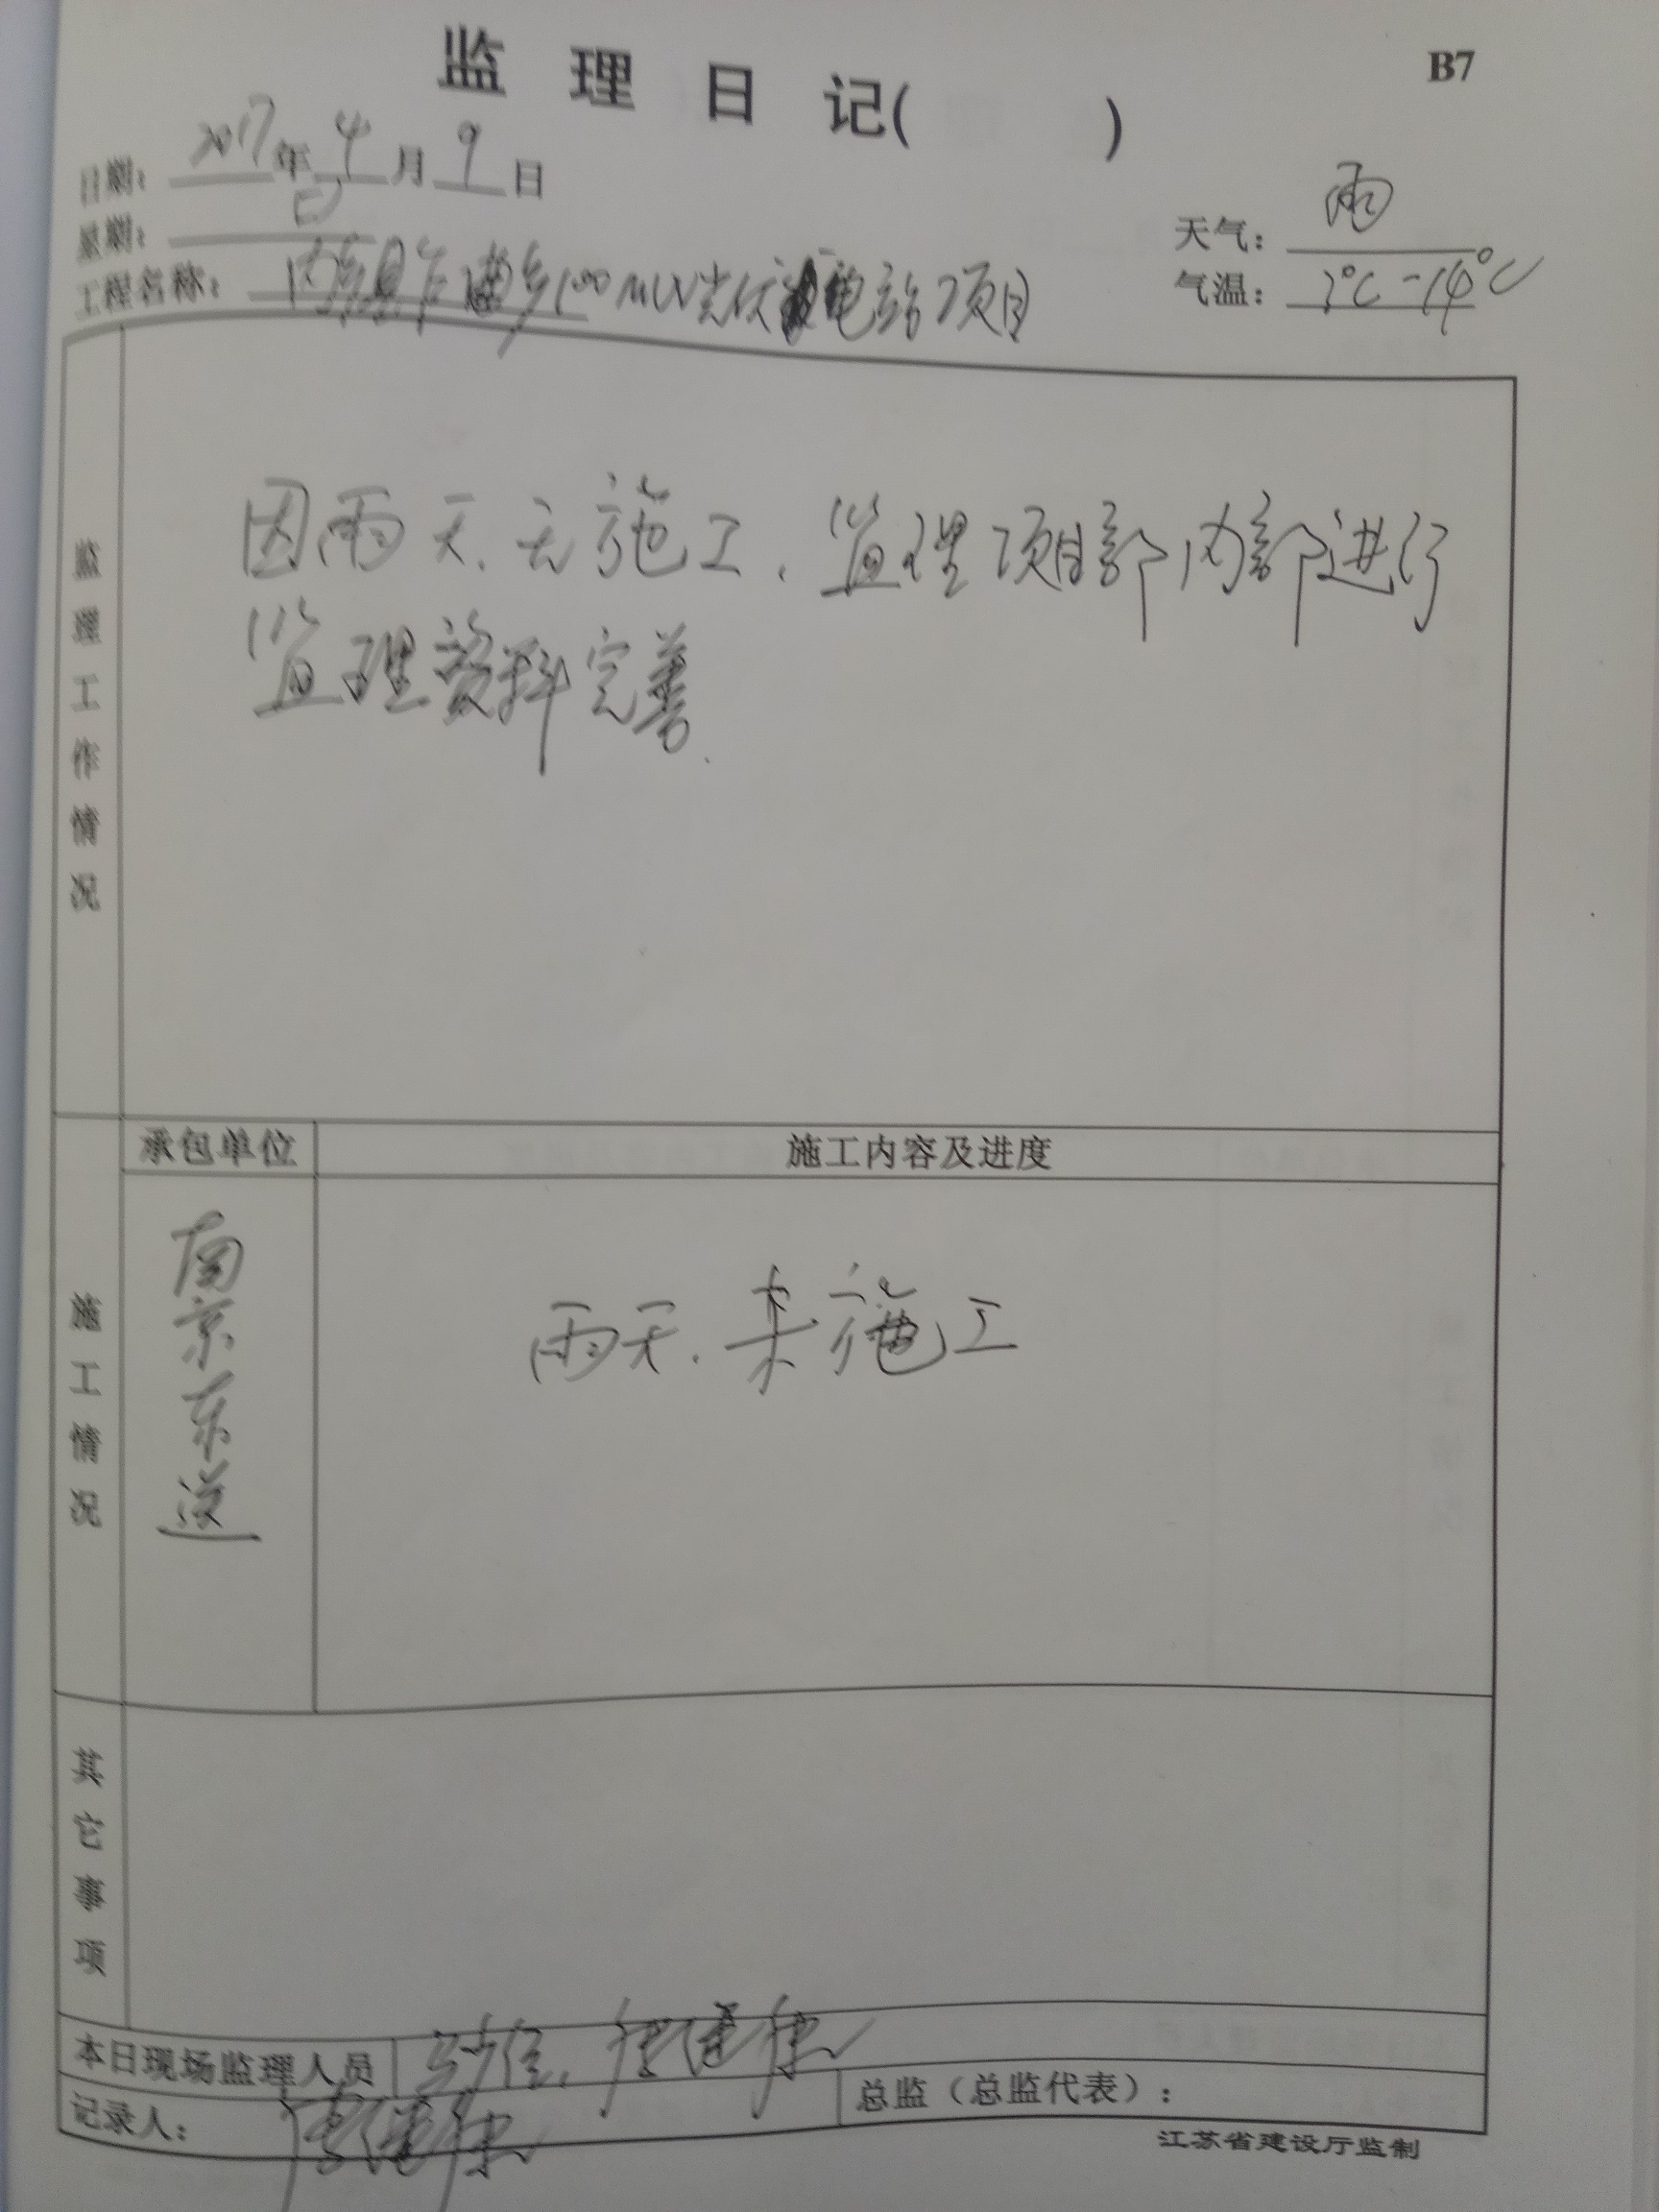 B7
监理日记(      )
日期：2017年4月9日
星期：日
天气：雨
工程名称：内乡县乍曲乡100MW光伏发电站项目
气温：7℃-14℃
监理工作情况
因雨天.无施工.监理项目部内部进行
监理资料完善.
施工情况
承包单位
施工内容及进度
南京东送
雨天.未施工
其它事项
本日现场监理人员
记录人：
总监（总监代表）：
江苏省建设厅监制